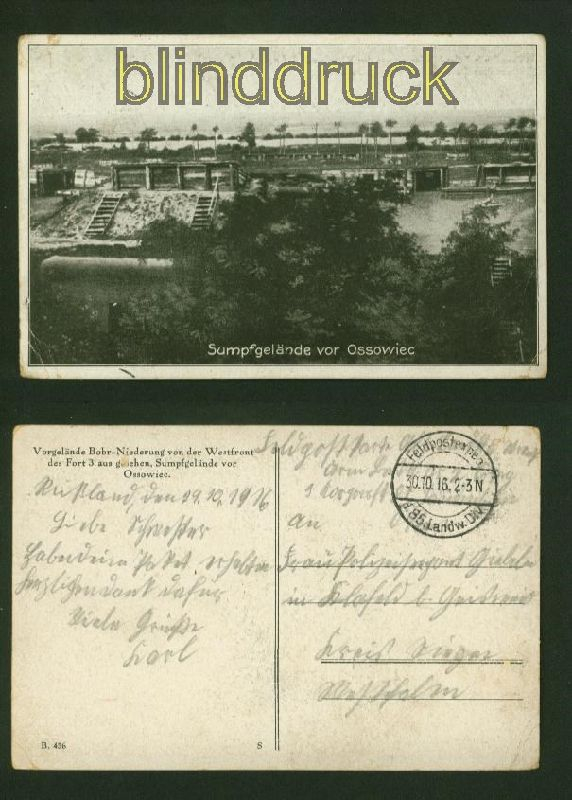 blinddruck
Sumpfgelände vor Ossowiec
Vorgelände Bobr-Niederung von der Westfront
des Fort 3 aus gesehen, Sumpfgelände vor
Ossowiec.
Rußland, den 29.10.1916
Liebe Schwester
Habe dein Paket erhalten
herzlichen dank dafür
Viele Grüße
Karl
Feldpost Karte
Feldpostexped.
30.10.16. 2-3 N
d. 85. Landw. Div.
An
Frau Polizeisergant
in Klafeld b. Geisweid
Kreis Siegen
Westfalen
B. 426
S